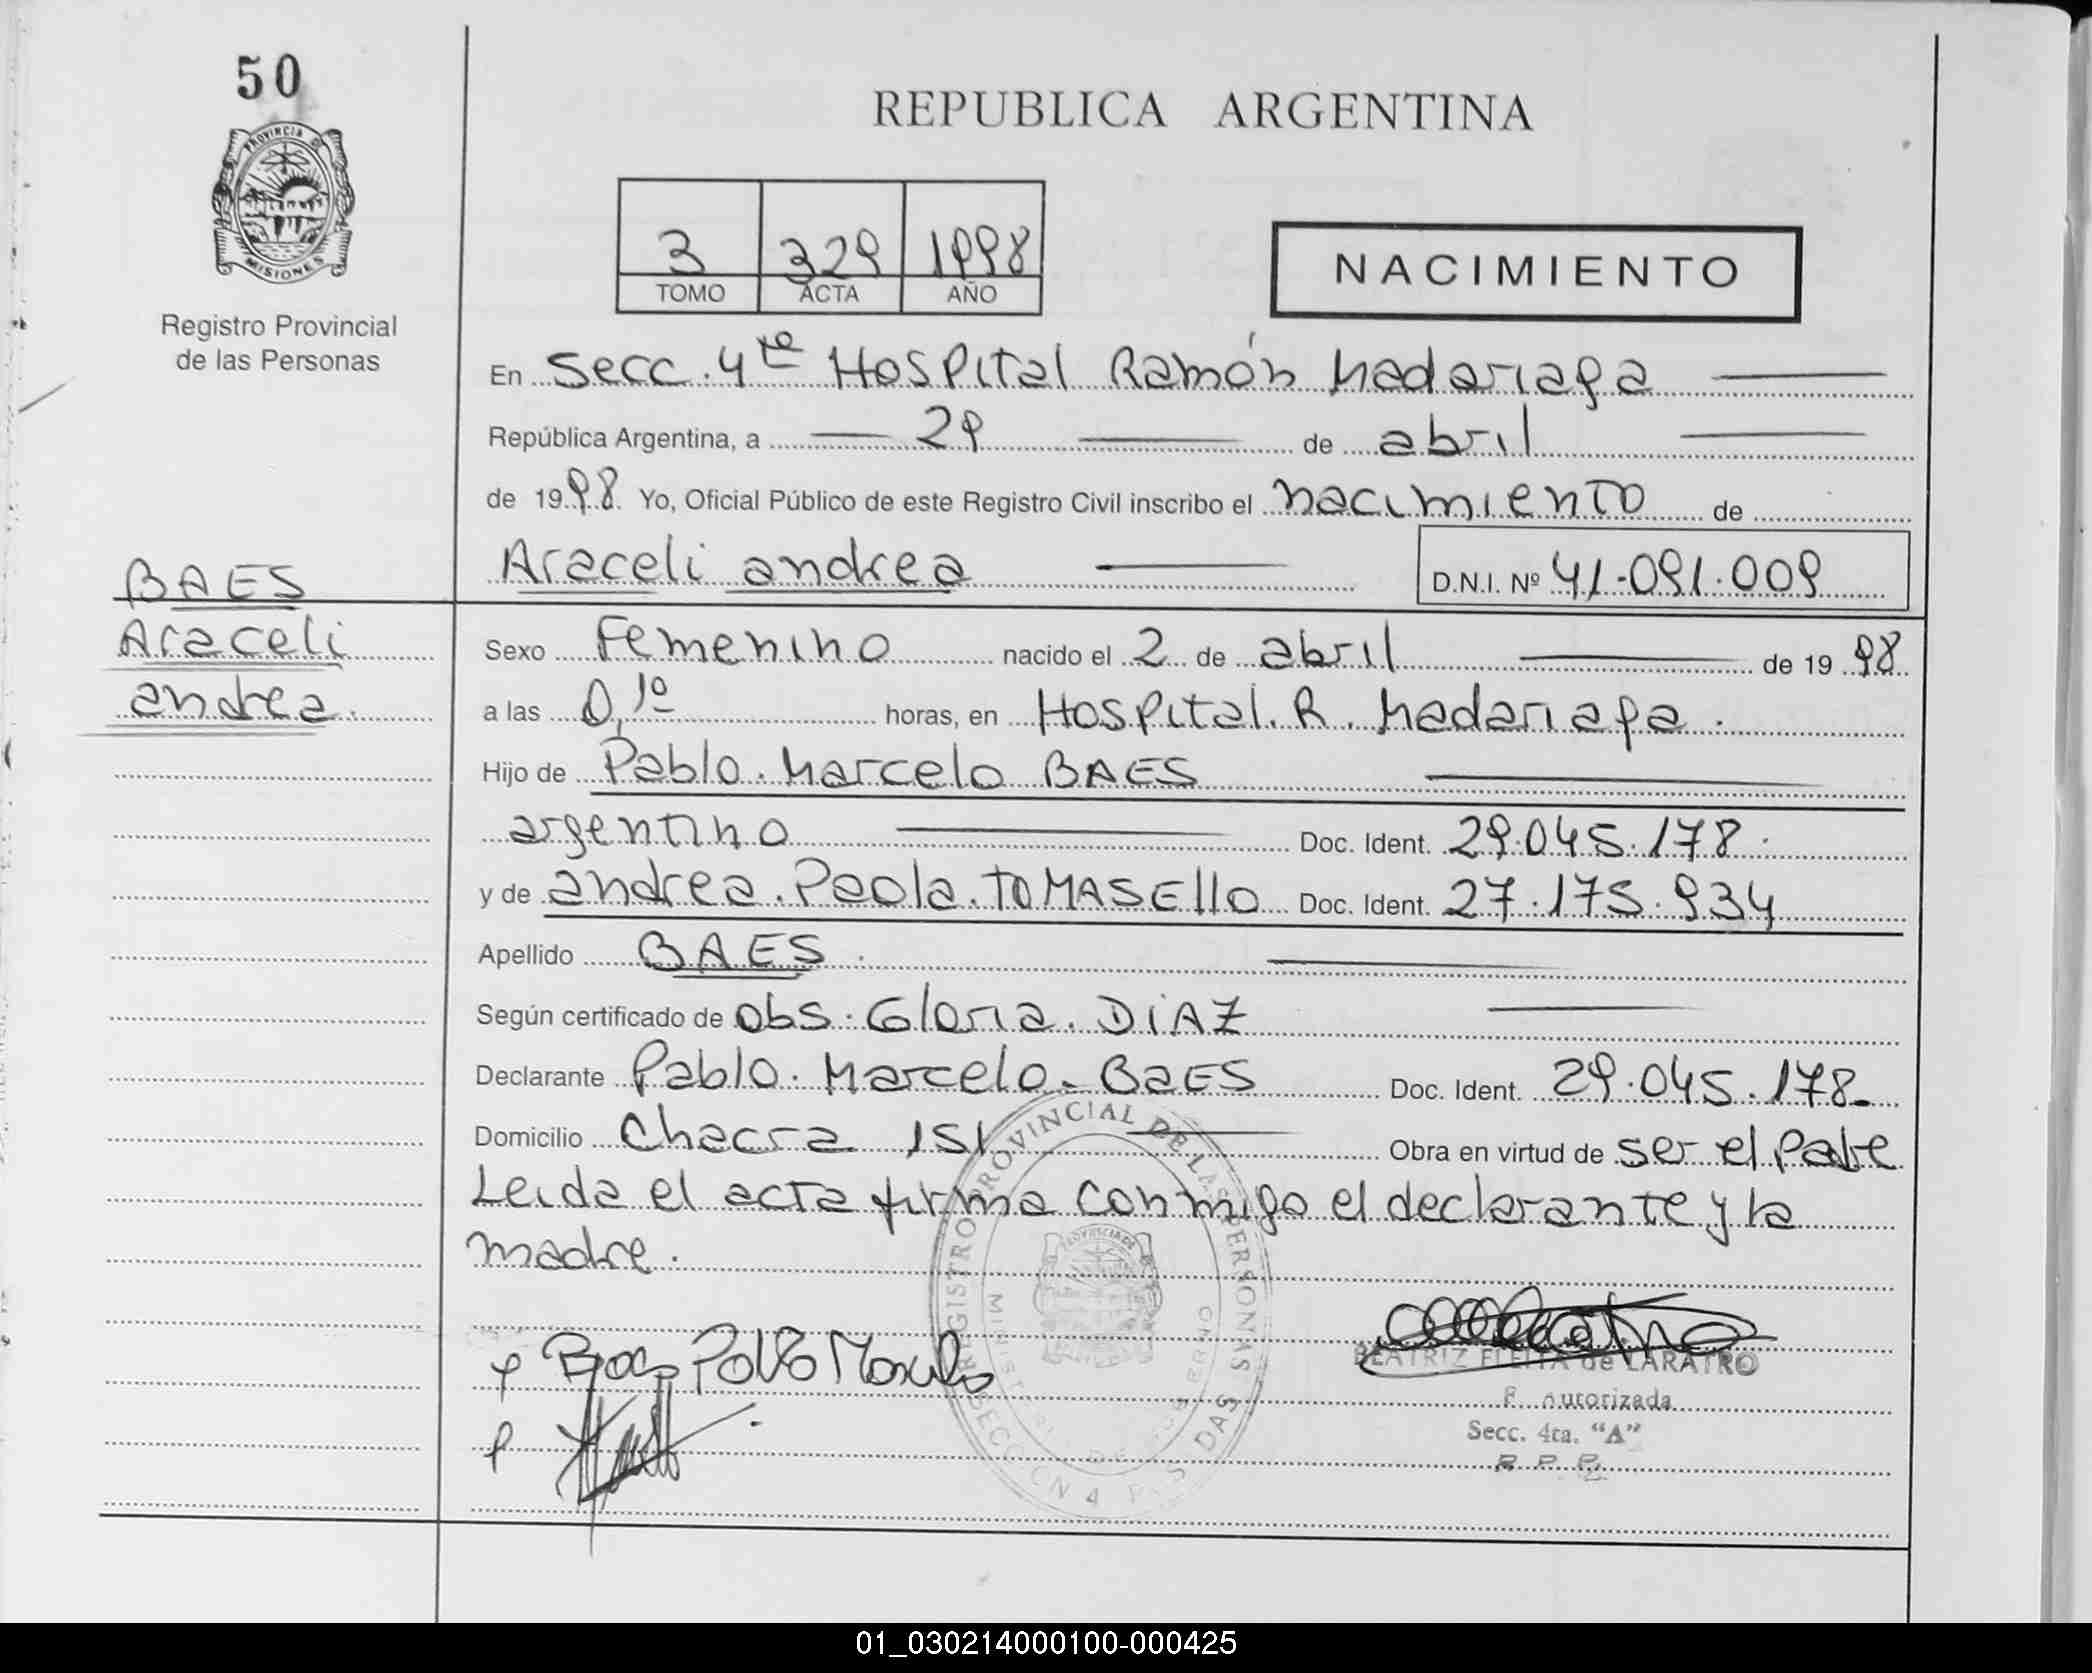 50
REPUBLICA ARGENTINA
3 329 1998
TOMO ACTA AÑO
NACIMIENTO
PROVINCIA DE
MISIONES
Registro Provincial
de las Personas
En Secc. 4ta Hospital Ramón Madariaga
República Argentina, a 29 de abril
de 1998 Yo, Oficial Público de este Registro Civil inscribo el nacimiento de
Araceli andrea D.N.I. Nº 41.091.009
BAES
Araceli
andrea.
Sexo Femenino nacido el 2 de abril de 1998
a las 0,10 horas, en Hospital R. Madariaga.
Hijo de Pablo Marcelo BAES
argentino Doc. Ident. 29.045.178.
y de andrea Paola TOMASEllO Doc. Ident. 27.175.934
Apellido BAES.
Según certificado de Obs. Gloria DiAZ
Declarante Pablo Marcelo BaES Doc. Ident. 29.045.178.
Domicilio Chacra 151 Obra en virtud de ser el Padre
Leida el acta firma conmigo el declarante y la
madre.
REGISTRO PROVINCIAL DE LAS PERSONAS
PROVINCIA DE
SECCION 4 POSADAS
Baes Pablo Marcelo
BEATRIZ FLEITA de LARATRO
F. Autorizada
Secc. 4ta. "A"
R. P. P.
01_030214000100-000425